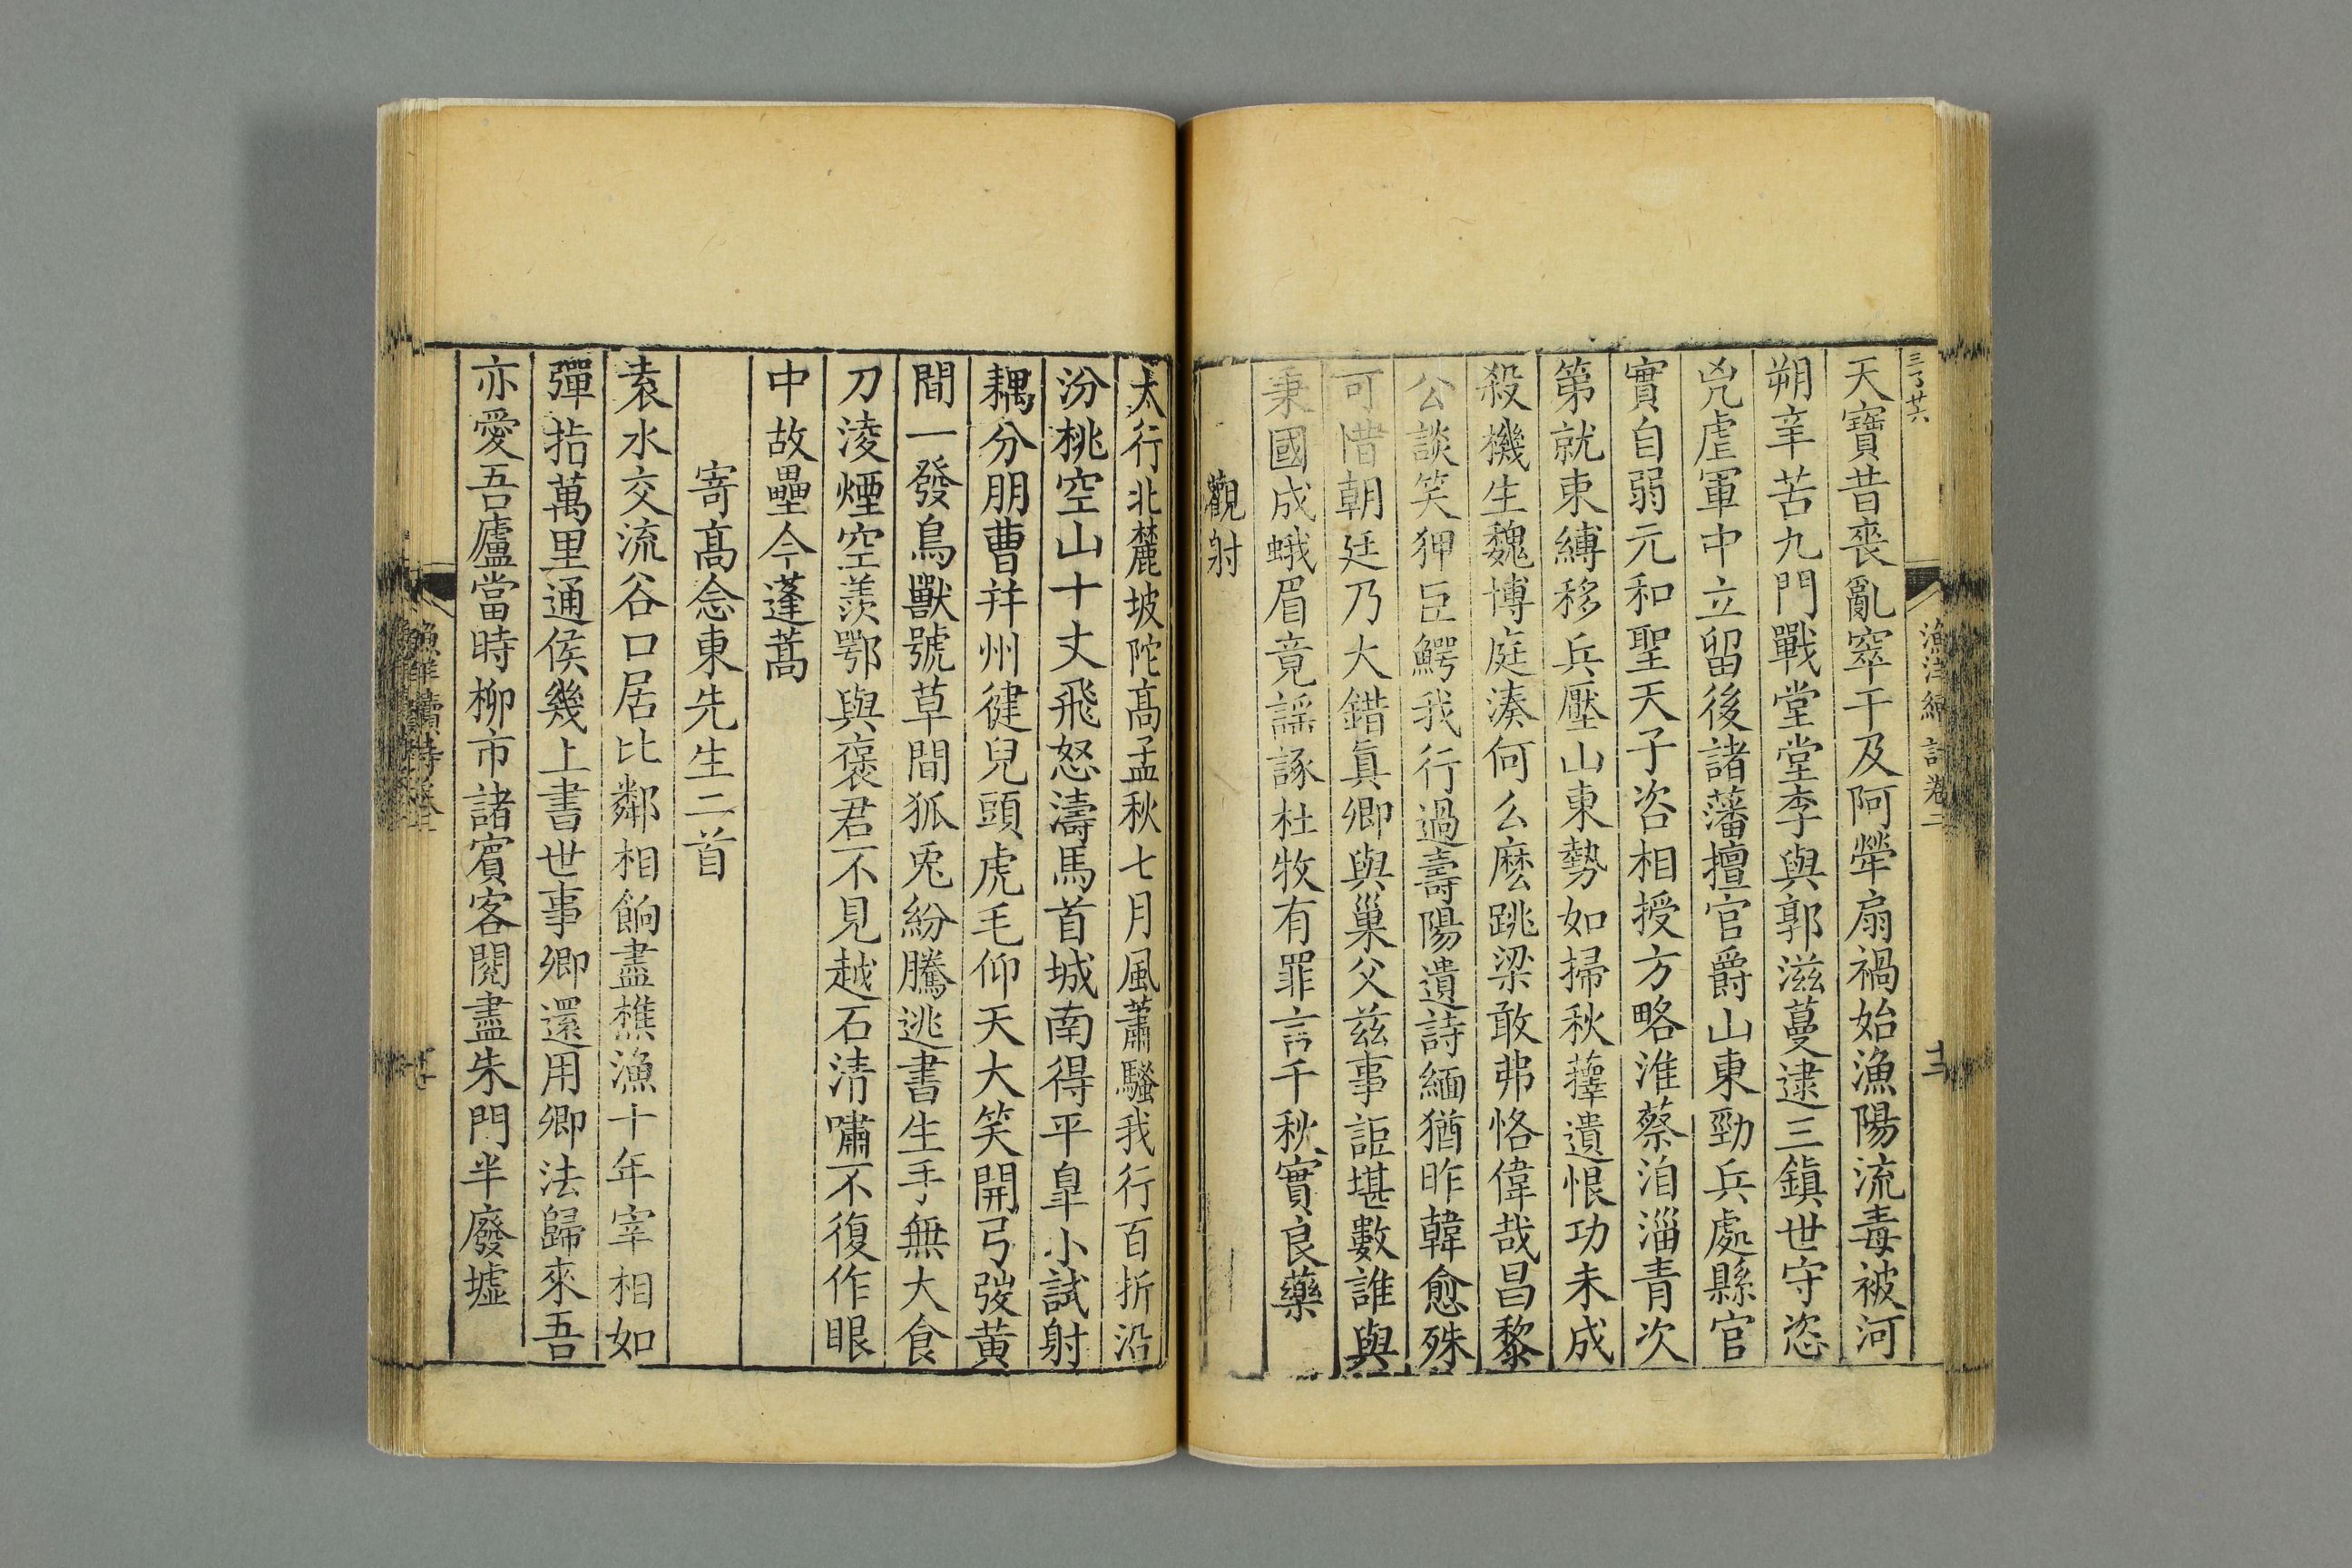 三丁廿六
天寶昔喪亂窣干及阿犖扇禍始漁陽流毒被河
朔辛苦九門戰堂堂李與郭滋蔓逮三鎮世守恣
兇虐軍中立留後諸藩擅官爵山東勁兵處縣官
實自弱元和聖天子咨相授方略淮蔡洎淄青次
第就束縛移兵壓山東勢如掃秋蘀遺恨功未成
殺機生魏博庭湊何么麽跳梁敢弗恪偉哉昌黎
公談笑狎巨鰐我行過壽陽遺詩緬猶昨韓愈殊
可惜朝廷乃大錯眞卿與巢父兹事詎堪數誰與
秉國成蛾眉竟謡諑杜牧有罪言千秋實良藥
觀射
太行北麓坡陀高孟秋七月風蕭騷我行百折沿
汾桃空山十丈飛怒濤馬首城南得平臯小試射
耦分朋曹幷州健兒頭虎毛仰天大笑開弓弢黄
間一發鳥獸號草間狐兎紛騰逃書生手無大食
刀淩煙空羨鄂與褒君不見越石清嘯不復作眼
中故壘今蓬蒿
寄高念東先生二首
袁水交流谷口居比鄰相餉盡樵漁十年宰相如
彈指萬里通侯幾上書世事卿還用卿法歸來吾
亦愛吾廬當時柳市諸賓客閱盡朱門半廢墟